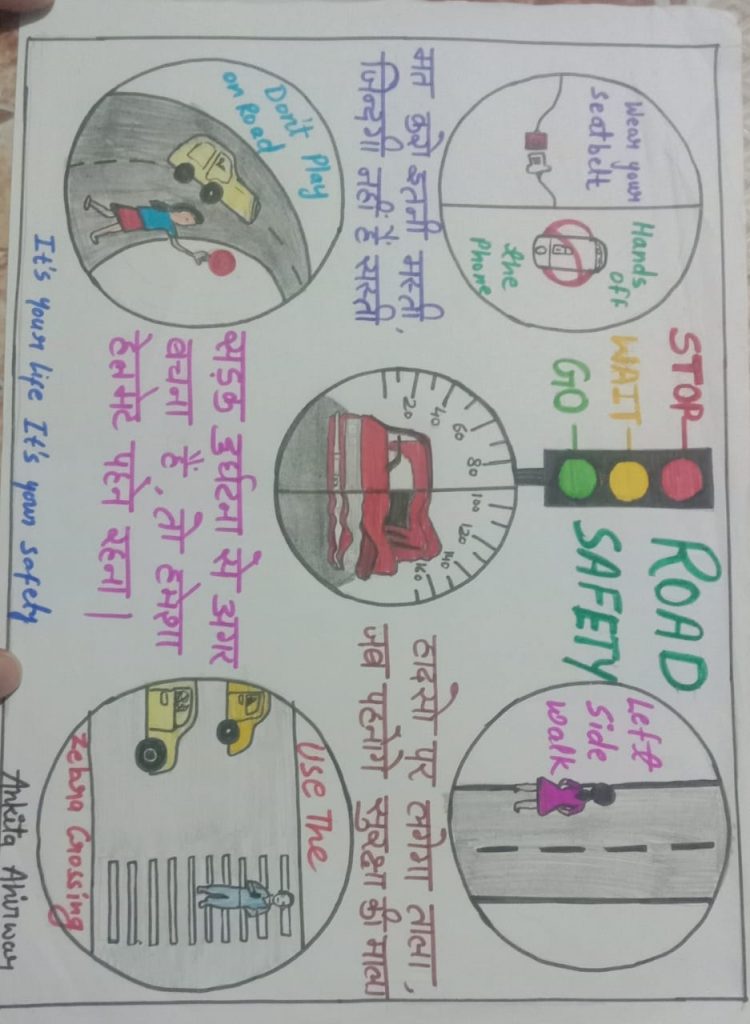 STOP
WAIT
GO
ROAD
SAFETY
Wear your
seatbelt
Hands
off
the
Phone
Left
Side
Walk
मत करो इतनी मस्ती,
जिन्दगी नहीं है सस्ती
20 40 60 80 100 120 140 160
हादसो पर लगेगा ताला,
जब पहनोगे सुरक्षा की माला
Don't Play
on Road
सड़क दुर्घटना से अगर
बचना है, तो हमेशा
हेलमेट पहेन रहना।
USE The
Zebra Crossing
It's your life It's your safety
Ankita Ahirwar